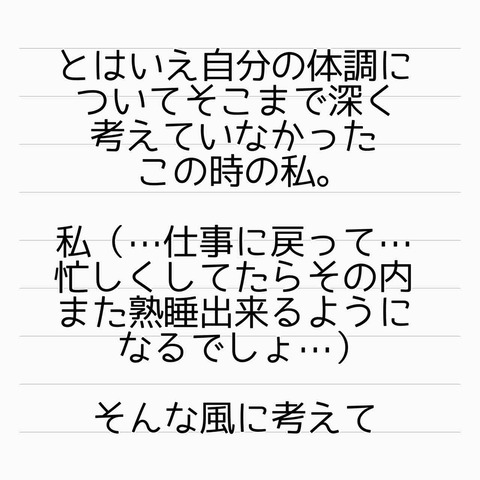 とはいえ自分の体調に
ついてそこまで深く
考えていなかった
この時の私。
私（…仕事に戻って…
忙しくしてたらその内
また熟睡出来るように
なるでしょ…）
そんな風に考えて